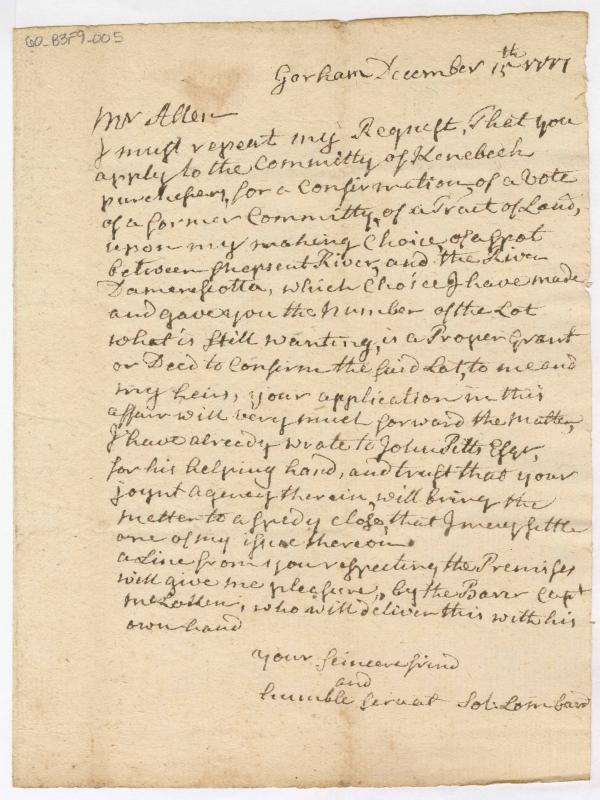 60-B3F9-005
Gorham December 15th 1771
Mr Allen
I must repeat my Request, That you
apply to the Committy of Kenebeck
purchesers, for a Confirmation of a Vote
of a former Committy, of a Tract of Land,
upon my making Choice, of a spot
between Shepsent River, and the River
Damerescotta, which Choice I have made
and gave you the Number of the Lot
what is still wanting, is a Proper Grant
or Deed to Confirm the said Lot, to me and
my heirs, your application in this
affair will very much forward the Matter,
I have already wrote to John Pitts Esqr,
for his helping hand, and trust that your
joynt agency therein, will bring the
metter to a spedy close, that I may settle
one of my issue thereon
a Line from you respecting the Premises
will give me pleasure, by the Barer Capt
McLallen, who will deliver this with his
own hand
your seincere frind
and
humble servat Sol: Lombard